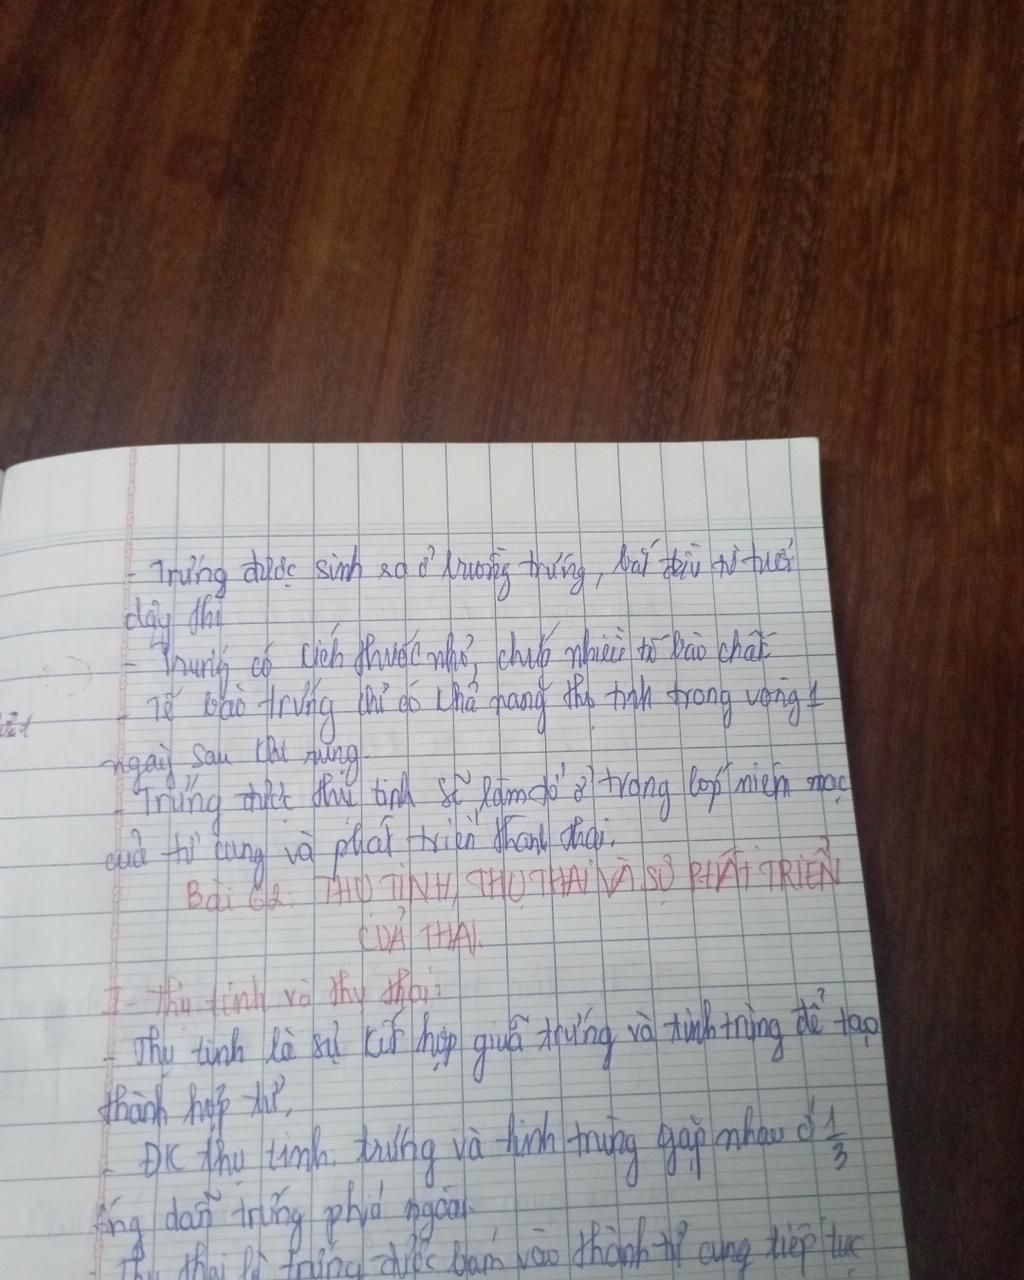 - Trứng được sinh ra ở buồng trứng, bắt đầu từ tuổi
dậy thì
- Trứng có kích thước nhỏ, chứa nhiều tế bào chất
- Tế bào trứng chỉ có khả năng thụ tinh trong vòng 1
ngày sau khi rụng.
- Trứng được thụ tinh sẽ làm tổ ở trong lớp niêm mạc
của tử cung và phát triển thành thai.
Bài 62. THỤ TINH, THỤ THAI VÀ SỰ PHÁT TRIỂN
CỦA THAI.
I- Thụ tinh và thụ thai:
- Thụ tinh là sự kết hợp giữa trứng và tinh trùng để tạo
thành hợp tử.
- ĐK thụ tinh: trứng và tinh trùng gặp nhau ở 1/3
ống dẫn trứng phía ngoài
- Thụ thai là trứng được bám vào thành tử cung tiếp tục